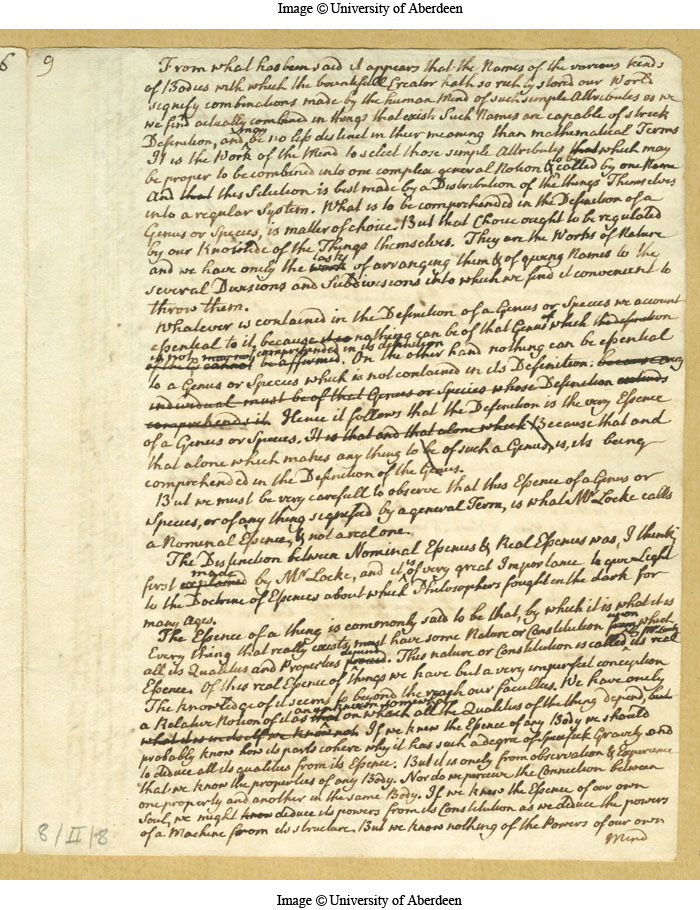 Image © University of Aberdeen
6
9
From what has been said it appears that the Names of the various kinds
of Bodies with which the bountifull Creator hath so richly stored our World
signify combinations made by the human Mind of such simple Attributes as we
we find actually combined in things that exist. Such Names are capable of strict
Definition, and may be no less distinct in their meaning than mathematical Terms
It is the Work of the Mind to select those simple Attributes that which may
be proper to be combined into one complex general Notion & to be called by one Name
And that this Selection is best made by a Distribution of the things Themselves
into a regular System. What is to be comprehended in the Definition of a
Genus or Species, is matter of choice. But that Choice ought to be regulated
by our Knowledge of the Things themselves. They are the Works of Nature
and we have onely the work task of arranging them & of giving Names to the
several Divisions and Subdivisions into which we find it convenient to
throw them.
Whatever is contained in the Definition of a Genus or Species we account
essential to it, because nothing can be of that Genus of which the definition
is not may not comprehended in its definition
cannot be affirmed. On the other hand nothing can be essential
to a Genus or Species which is not contained in its Definition. because any
individual must be of that Genus or Species whose Definition
comprehends it. Hence it follows that the Definition is the very Essence
of a Genus or Species. It is that and that alone which Because that and
that alone which makes any thing to be of such a Genus, is, its being
comprehended in the Definition of the Genus.
But we must be very carefull to observe that this Essence of a Genus or
Species, or of any thing signified by a general Term, is what Mr Locke calls
a Nominal Essence, & not a real one.
The Distinction between Nominal Essences & Real Essences was, I think,
first explained made by Mr Locke, and it is of very great Importance to give Light
to the Doctrine of Essences about which Philosophers fought in the dark for
many Ages.
The Essence of a thing is commonly said to be that, by which it is what it is
Every thing that really exists, must have some Nature or Constitution from upon which
all its Qualities and Properties proceed depend. This nature or Constitution is called by Mr Locke its real
Essence. Of this real Essence of things we have but a very imperfect conception
The knowledge of it seems to beyond the reach our faculties. We have onely
a Relative Notion of it as that an unknown somewhat on which all the Qualities of the thing depend, but
what it is in itself we know not. If we knew the Essence of any Body we should
probably know how its parts cohere why it has such a degree of specifick Gravity and
to deduce all its qualities from its Essence. But it is onely from observation & Experience
that we know the properties of any Body. Nor do we perceive the Connection between
one property and another in the same Body. If we knew the Essence of our own
Soul, we might know deduce its powers from its Constitution as we deduce the powers
of a Machine from its structure. But we know nothing of the Powers of our own
Mind
8/II/8
Image © University of Aberdeen